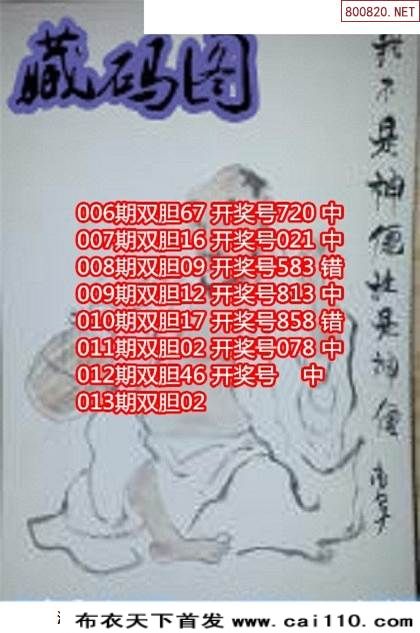 800820.NET
藏码图
006期双胆67 开奖号720 中
007期双胆16 开奖号021 中
008期双胆09 开奖号583 错
009期双胆12 开奖号813 中
010期双胆17 开奖号858 错
011期双胆02 开奖号078 中
012期双胆46 开奖号 中
013期双胆02
布衣天下首发 www.cai110.com